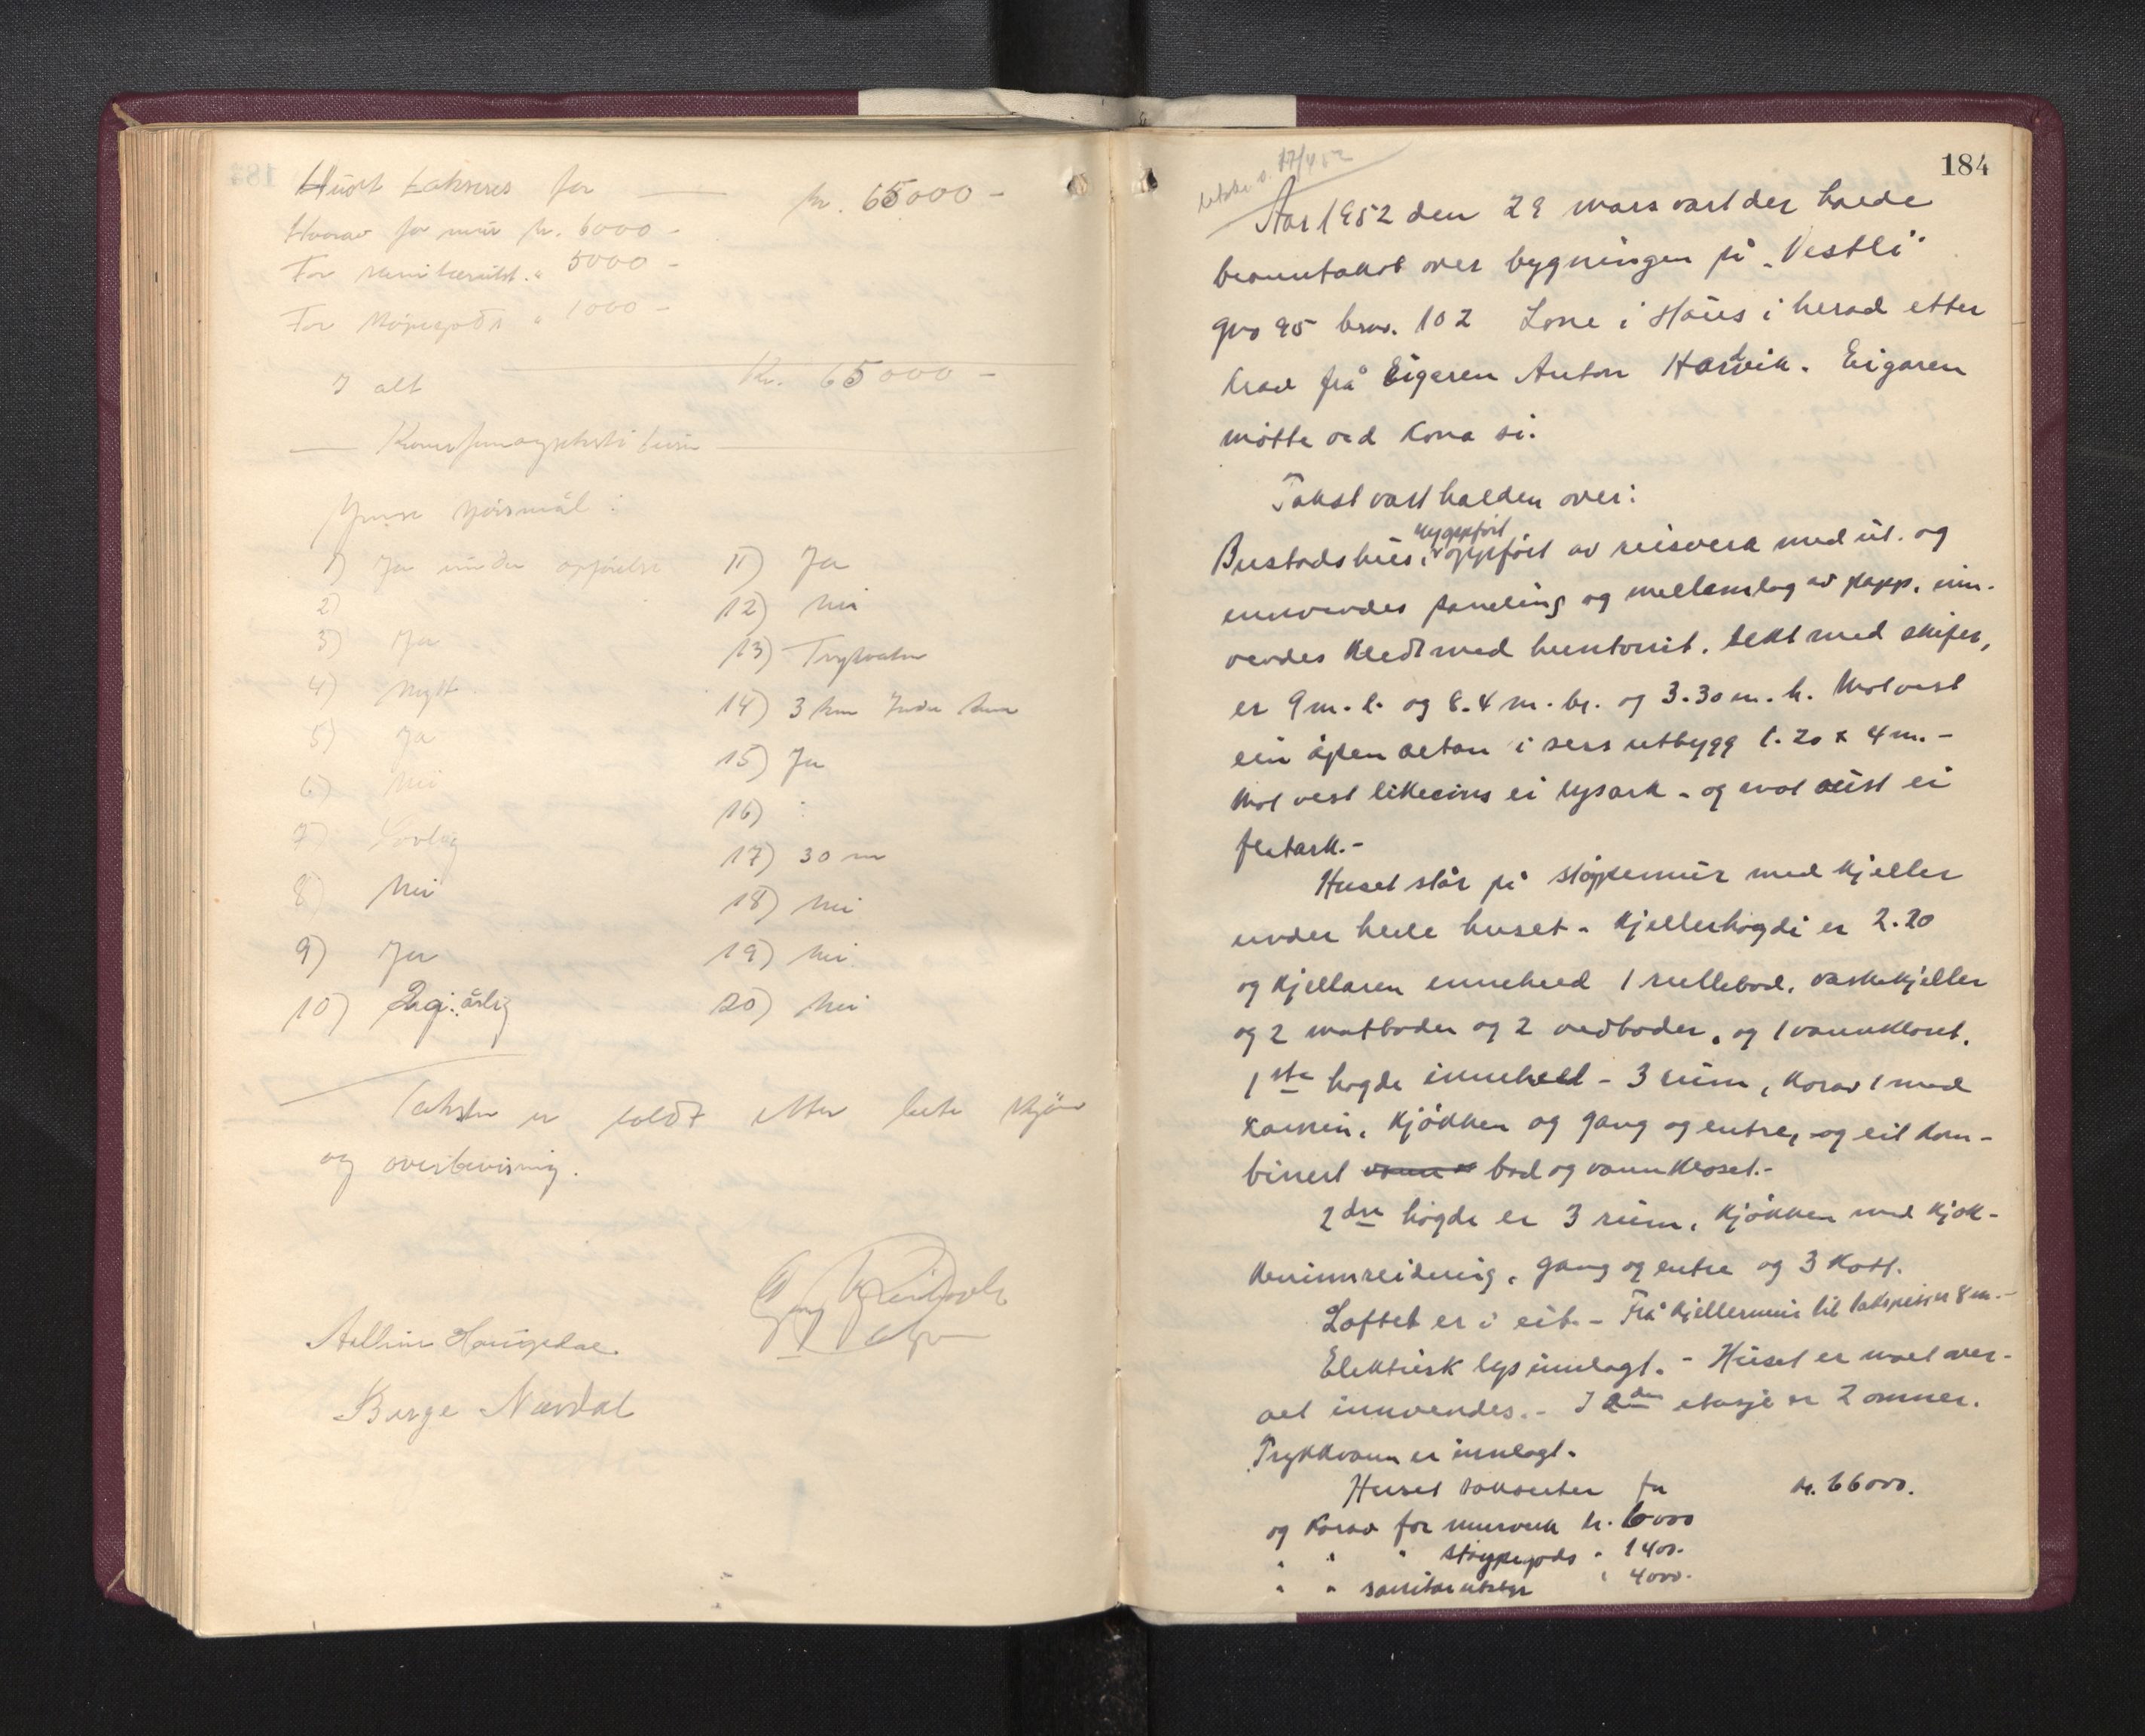 Huset takseres for kr. 65000 -
Hvorav for mur kr. 6000 -
For sanitærutst. " 5000 -
For støpegods " 1000 -
I alt Kr. 65000 -
Ymse spörsmål :
1) Ja under opförelse
2)
3) Ja
4) Nytt
5) Ja
6) Nei
7) Lovleg
8) Nei
9) Ja
10) årlig
11) Ja
12) Nei
13) Trykvatn
14) 3 km
15) Ja
16) :
17) 30 m
18) Nei
19) Nei
20) Nei
Taksten er satt etter beste skjön
og overbevisning.
Birge Navdal
184
17/4 52
Aar 1952 den 29 mars vart der halde
branntakst over bygningen på „Vestli"
gno 95 brno. 102 Lone i Haus i herad etter
krav frå Eigaren Anton Eigaren
møtte ved kona si.
Takst vart halden over:
nyoppfört
Bustadshus, oppfört av reisverk med ut. og
innvendes paneling og mellomlag av papp, inn-
vendes kledt med huntonit, tekt med skifer,
er 9 m. l. og 8.4 m. br. og 3.30 m. h. Mot vest
ein åpen altan i sers utbygg 1.20 x 4 m. -
Mot vest likeeins ei lysark - og mot aust ei
flatark. -
Huset står på støypemur med kjeller
under heile huset - Kjellerhøgdi er 2.20
og kjellaren inneheld 1 rullebod, vaskekjeller
og 2 matboder og 2 vedboder, og 1 vannkloset.
1ste høgde inneheld - 3 rum, korav 1 med
kamin, kjökken og gang og entre, og eit kom-
binert bad og vannkloset. -
2dre høgde er 3 rum, kjökken med kjök-
keninnreidning, gang og entre og 3 kott.
Loftet er i eit. - Frå kjellermur til takspissen 8 m. -
Elektrisk lys innlagt. - Huset er malt over-
alt innvendes. - I 2den etasje er 2 omner.
Trykkvann er innlagt.
Huset takserter for kr. 66000.
og korav for murverk kr. 6000
" " " støypegods " 1400.
" " sanitærutstyr " 4000.